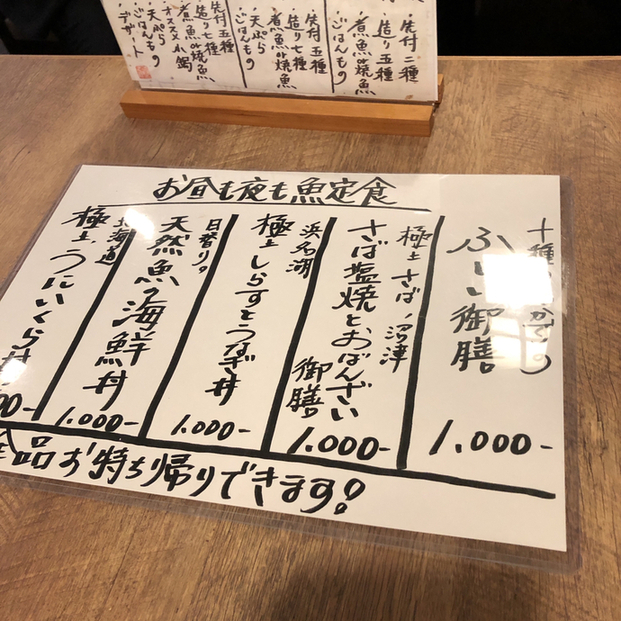 ・先付二種
・造り五種
・煮魚or焼魚
・ごはんもの
・先付五種
・造り七種
・煮魚or焼魚
・天ぷら
・ごはんもの
・煮魚or焼魚
・天ぷら
・ごはんもの
・デザート
お昼も夜も魚定食
十種
御膳
1.000-
極上さば・沼津
さば塩焼とおばんざい
御膳
1.000-
浜名湖
極上しらすとうなぎ丼
1.000-
日替りの
天然魚の海鮮丼
1.000-
北海道
極上うにいくら丼
00-
全品お持ち帰りできます!